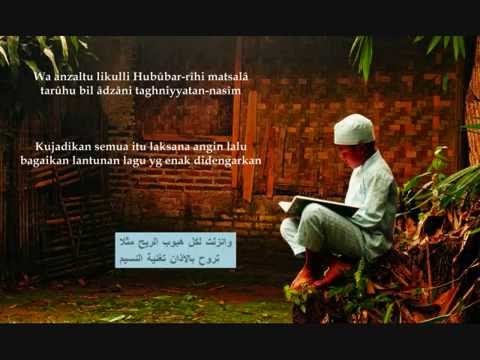 Wa anzaltu likulli Hubûbar-rîhi matsalâ
tarûhu bil âdzâni taghniyyatan-nasîm
Kujadikan semua itu laksana angin lalu
bagaikan lantunan lagu yg enak didengarkan
وانزلت لكل هبوب الريح مثلا
تروح بالاذان تغنية النسيم